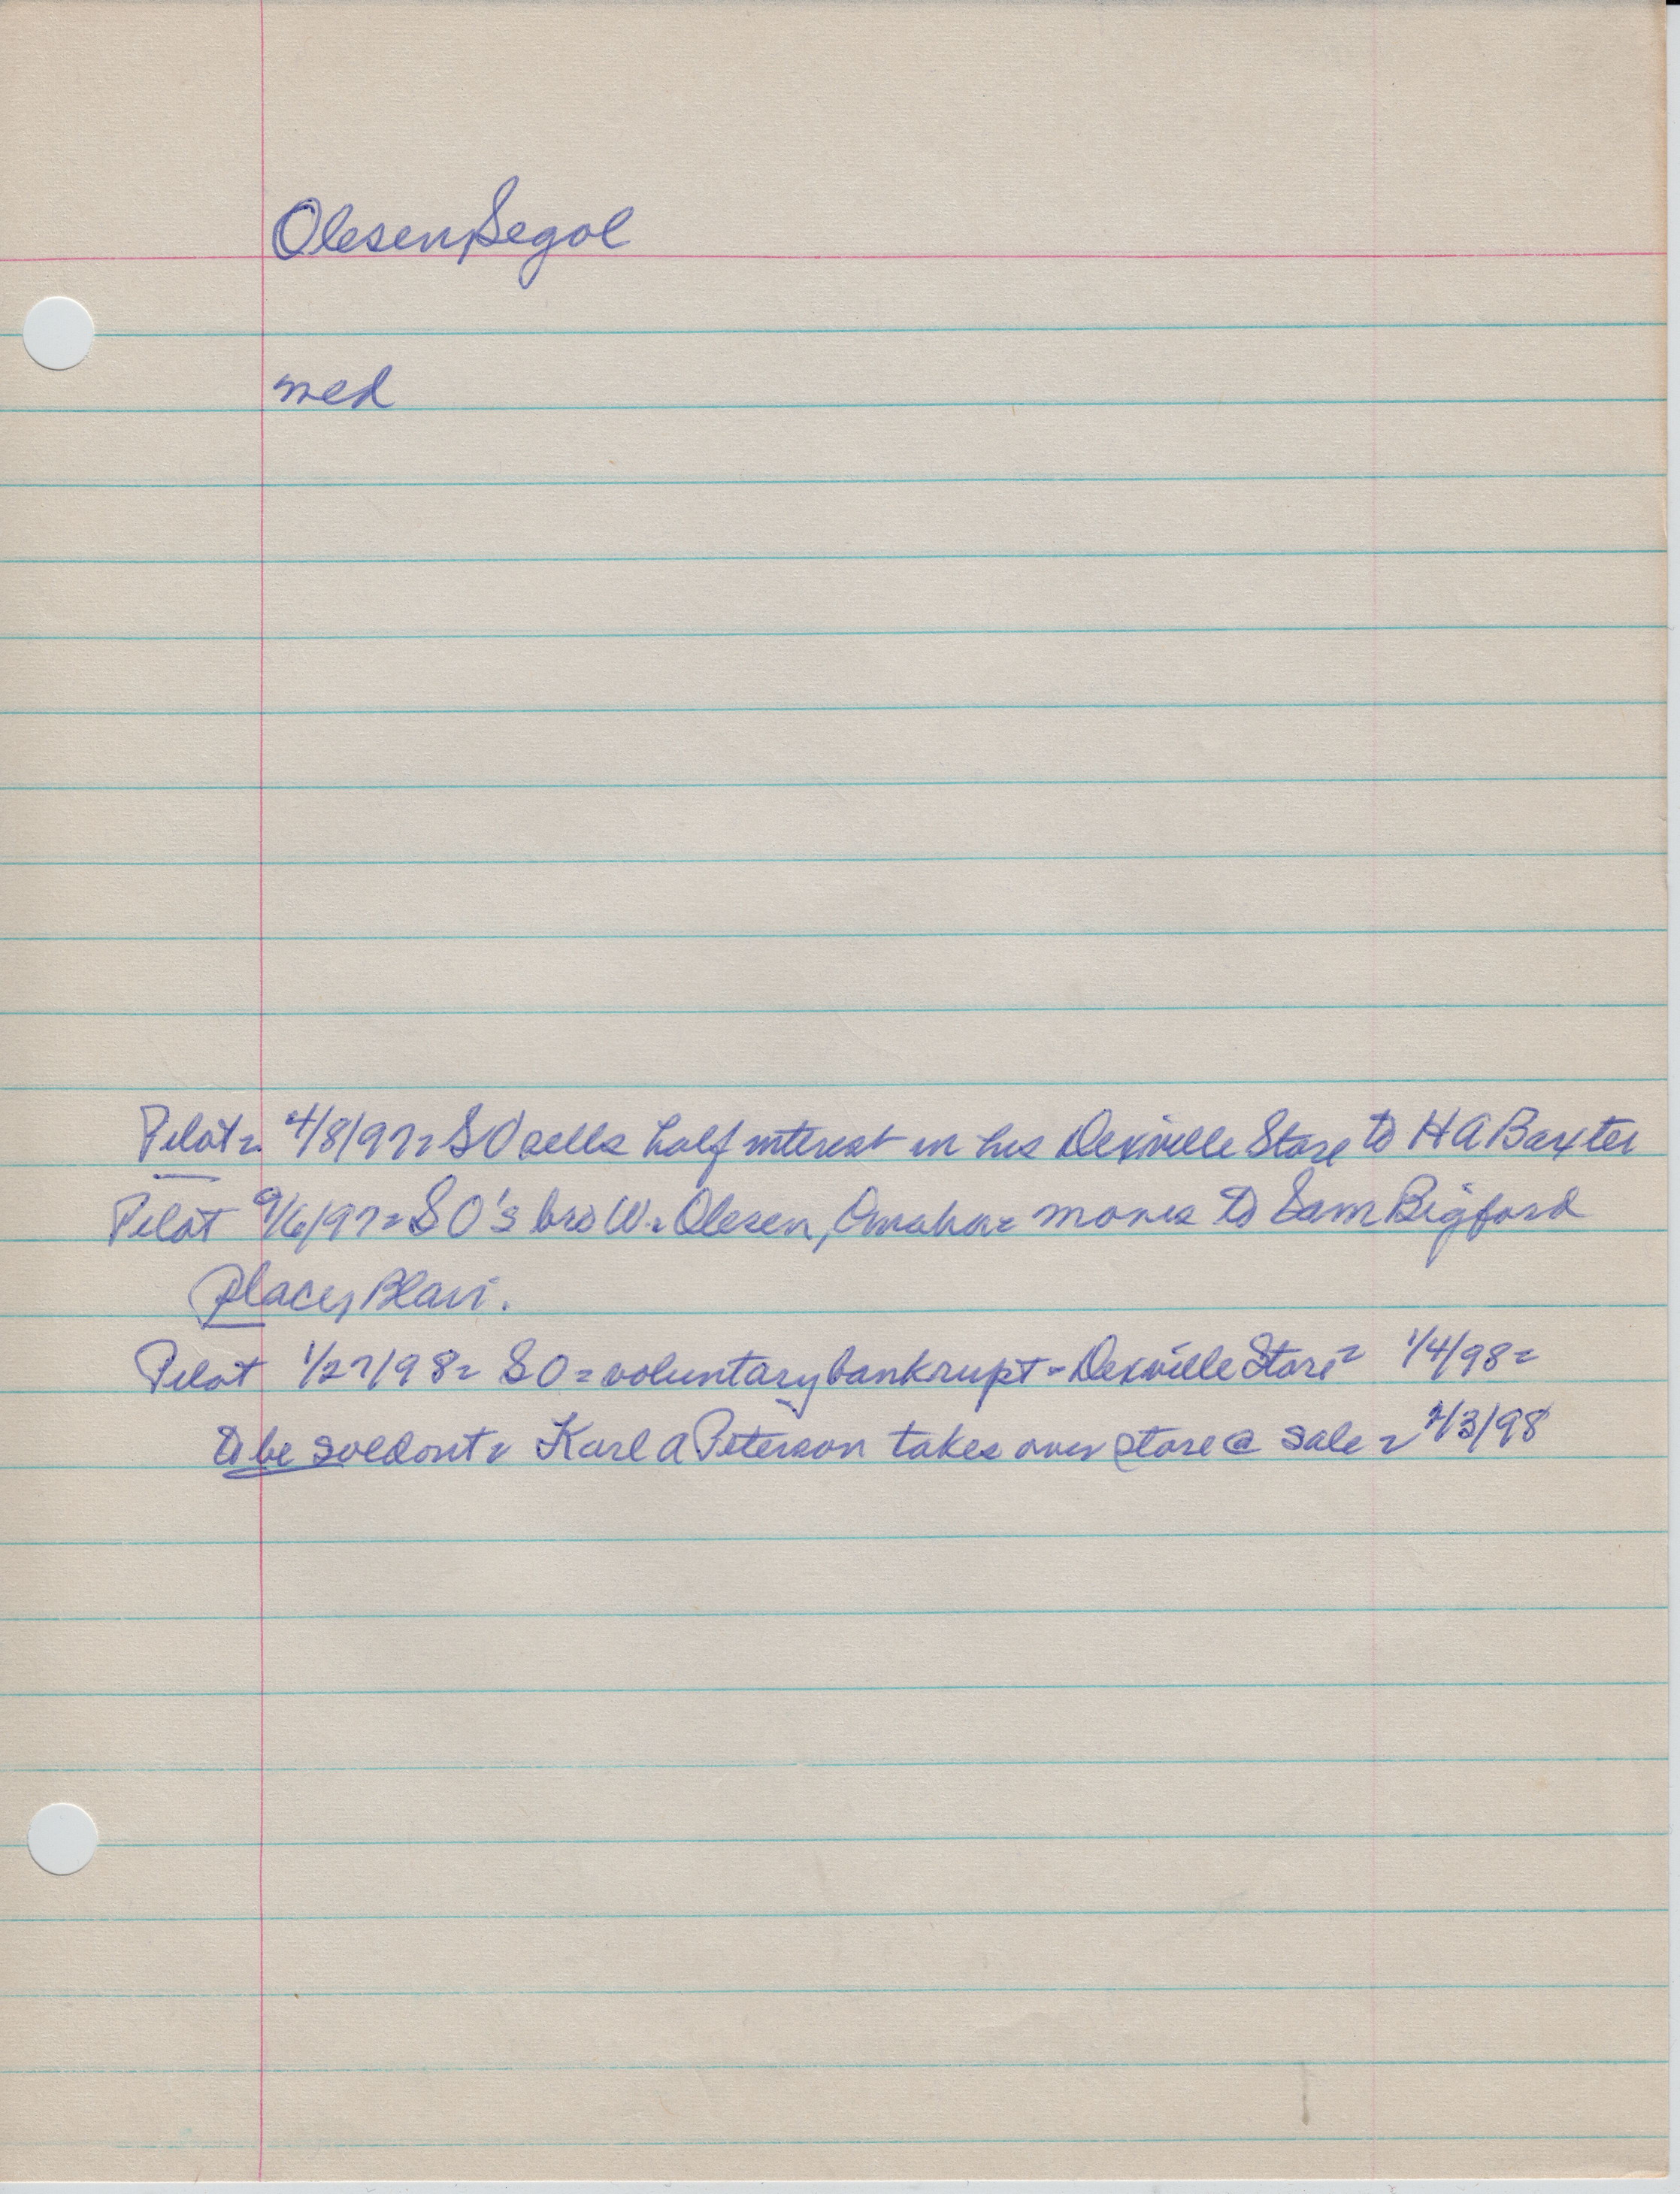 Olesen, Segol
med
Pilot = 4/8/97 = SO sells half interest in his Dexville Store to H A Baxter
Pilot 9/6/97 = SO's bro W. Olesen, Omaha = moves to Sam Bigford
place, Blair.
Pilot 1/27/98 = SO = voluntary bankrupt - Dexville Store = 1/4/98 =
to be sold out = Karl A Peterson takes over store @ sale = 2/3/98